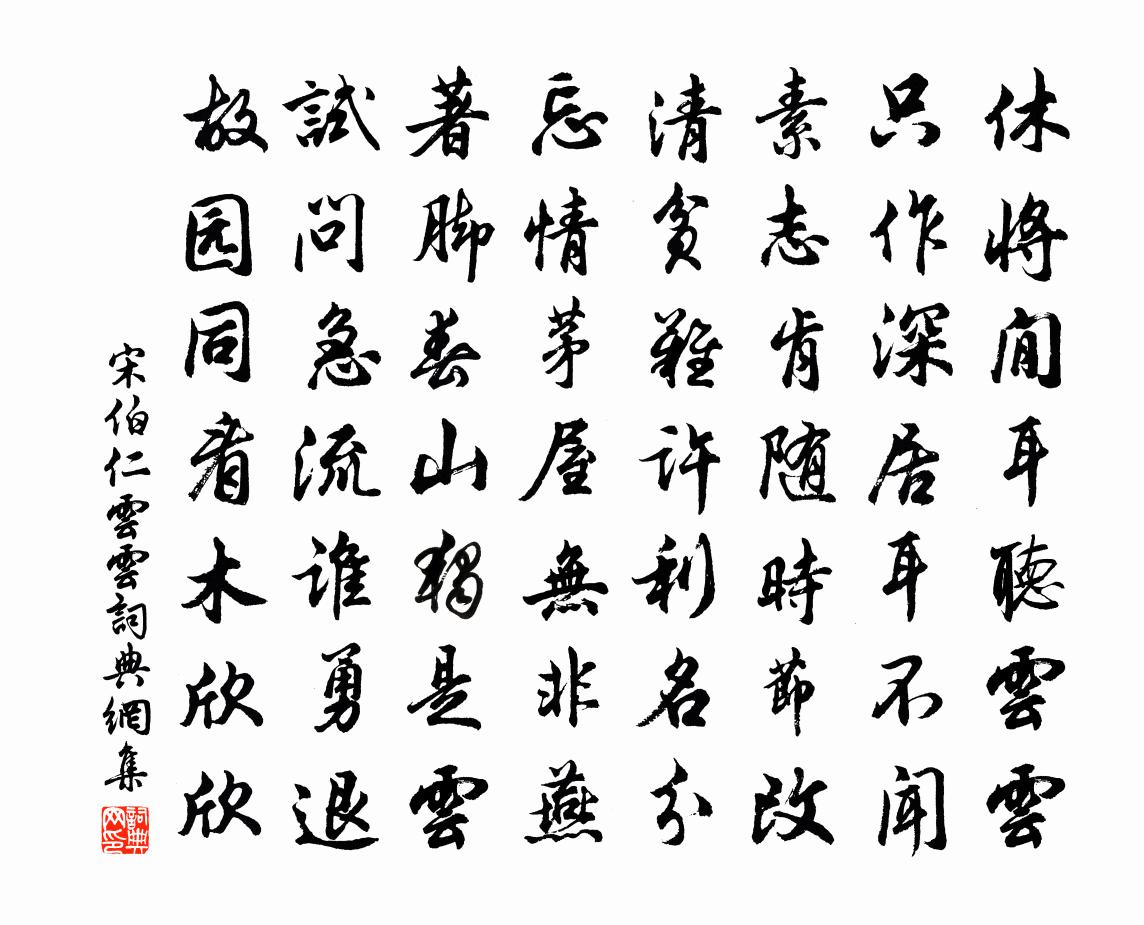 休將閒耳聽雲雲
只作深居耳不聞
素志肯随時節改
清貧難許利名分
忘情茅屋無非燕
著脚春山獨是雲
試問急流誰勇退
故园同看木欣欣
宋伯仁雲雲詞典網集
詞典网印